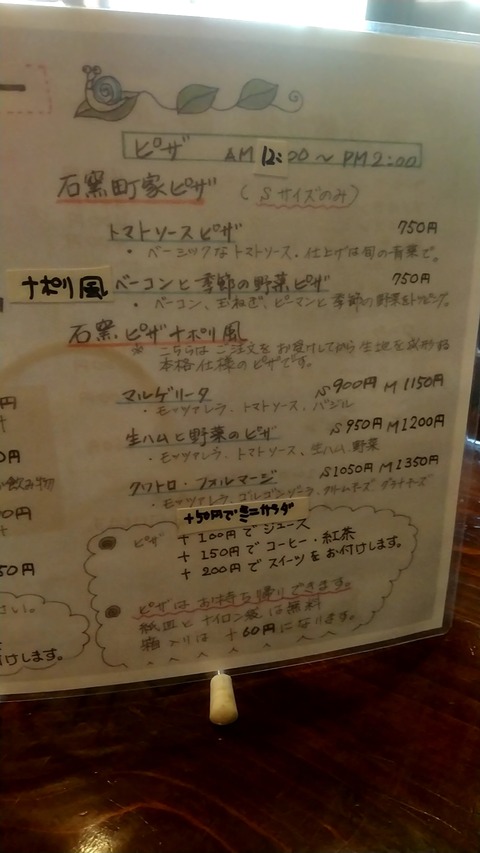 ピザ AM 12:00 ~ PM 2:00
石窯町家ピザ (Sサイズのみ)
トマトソースピザ 750円
・ベーシックなトマトソース。仕上げは旬の青菜で。
ナポリ風 ベーコンと季節の野菜ピザ 750円
・ベーコン、玉ねぎ、ピーマンと季節の野菜をトッピング。
石窯ピザナポリ風
※ こちらはご注文をお受けしてから生地を成形する
本格仕様のピザです。
マルゲリータ S900円 M1150円
・モッツアレラ、トマトソース、バジル
生ハムと野菜のピザ S950円 M1200円
・モッツアレラ、トマトソース、生ハム、野菜
クワトロ・フォルマージ S1050円 M1350円
・モッツアレラ、ゴルゴンゾーラ、クリームチーズ
+50円でミニサラダ
ピザ +100円でジュース
+150円でコーヒー・紅茶
+200円でスイーツをお付けします。
ピザはお持ち帰りできます。
紙皿とナイロン袋は無料
箱入りは +60円になります。
円
円
飲み物
円
50円
さい。
付けします。